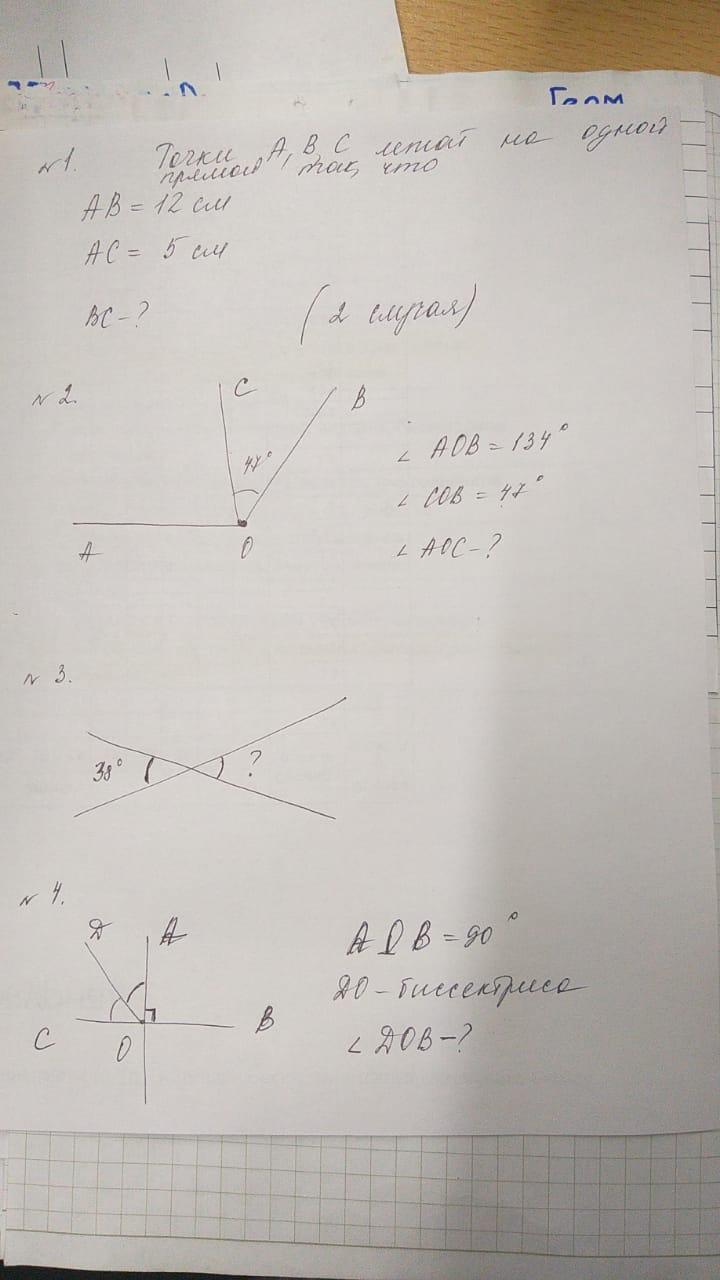 Геом
№1. Точки A, B, C лежат на одной
прямой так, что
AB = 12 см
AC = 5 см
BC - ? (2 случая)
№2.
C
B
47°
A
O
∠ AOB = 134°
∠ COB = 47°
∠ AOC - ?
№3.
38°
?
№4.
Д
A
C
O
B
AOB = 90°
ДО - биссектриса
∠ ДОВ - ?